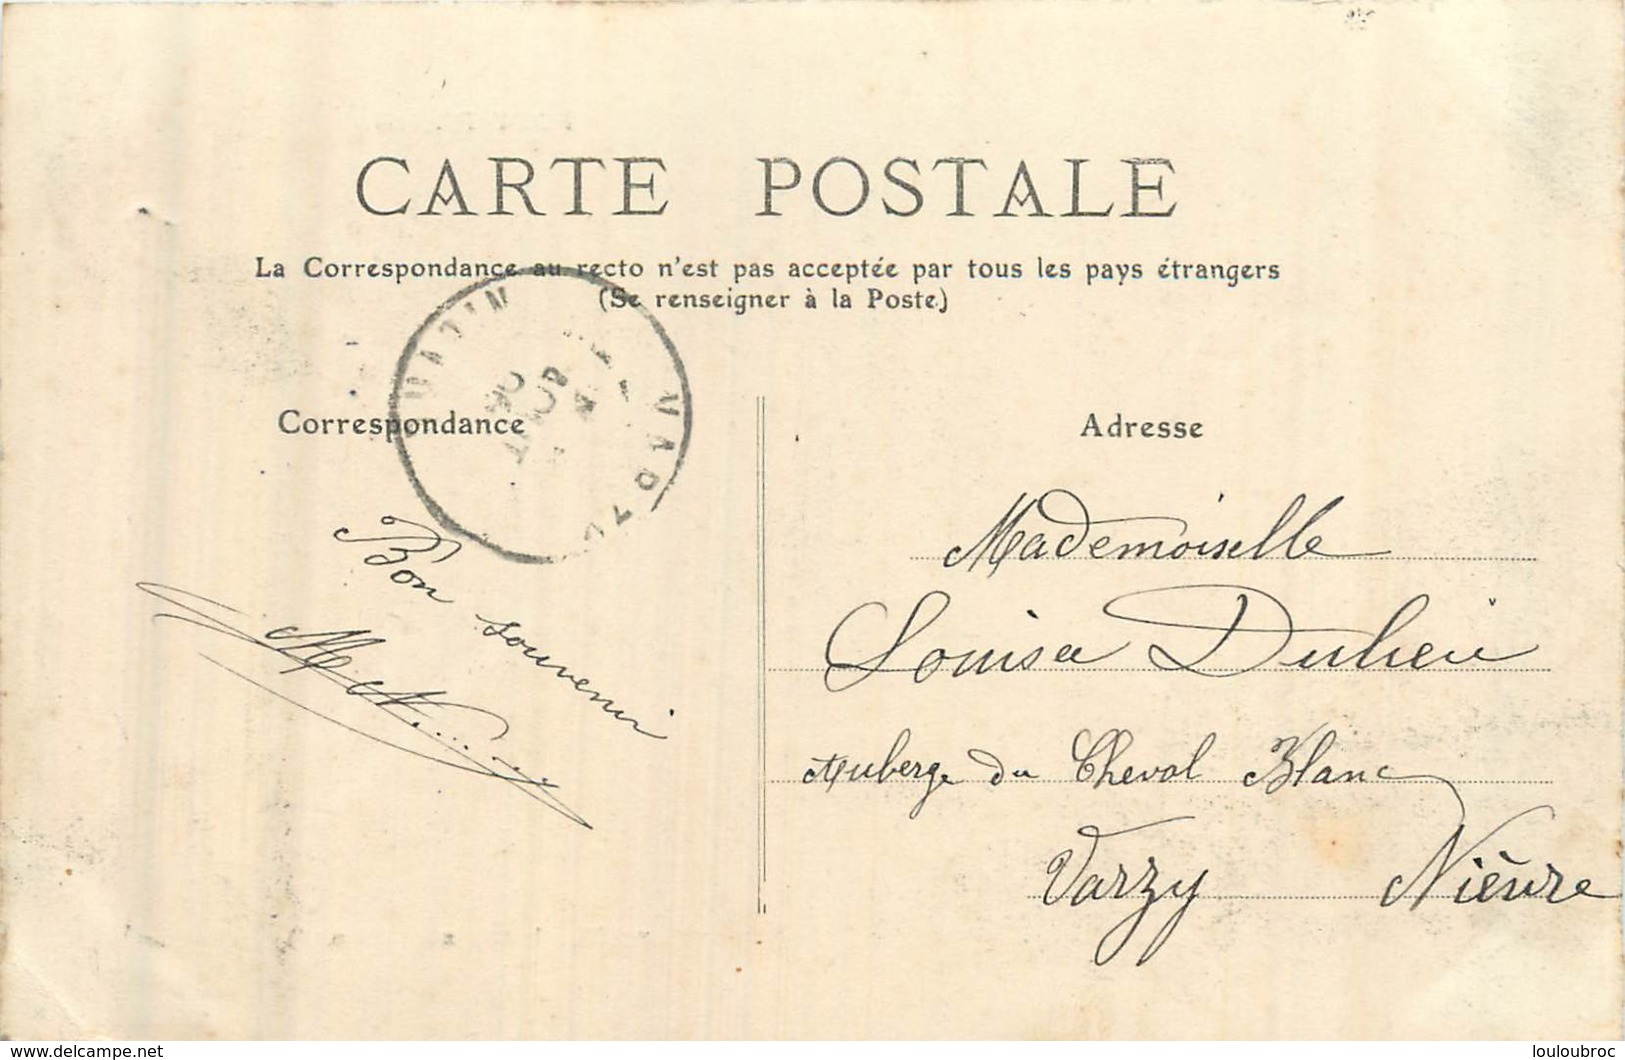 CARTE POSTALE
La Correspondance au recto n'est pas acceptée par tous les pays étrangers
(Se renseigner à la Poste)
Correspondance
Bon souvenir
Adresse
Mademoiselle
Louisa
Auberge du Cheval Blanc
Varzy Nièvre
MATIN
VARZY
AOUT
© delcampe.net
louloubroc